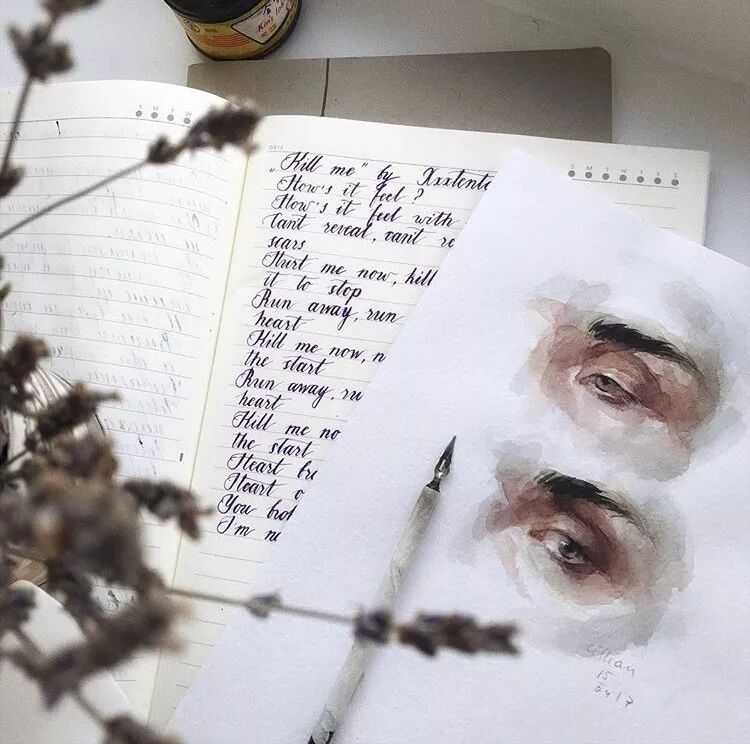 „Kill me" by Xxxtenta
How's it feel?
How's it feel with
Can't reveal, can't re
scars
Hurt me now, kill
it to stop
Run away, run
heart
Kill me now, n
the start
Run away, ru
heart
Kill me no
the start
Heart br
Heart o
You brok
I'm nu
DATE
S M T W
S M T W T F S
15
0417